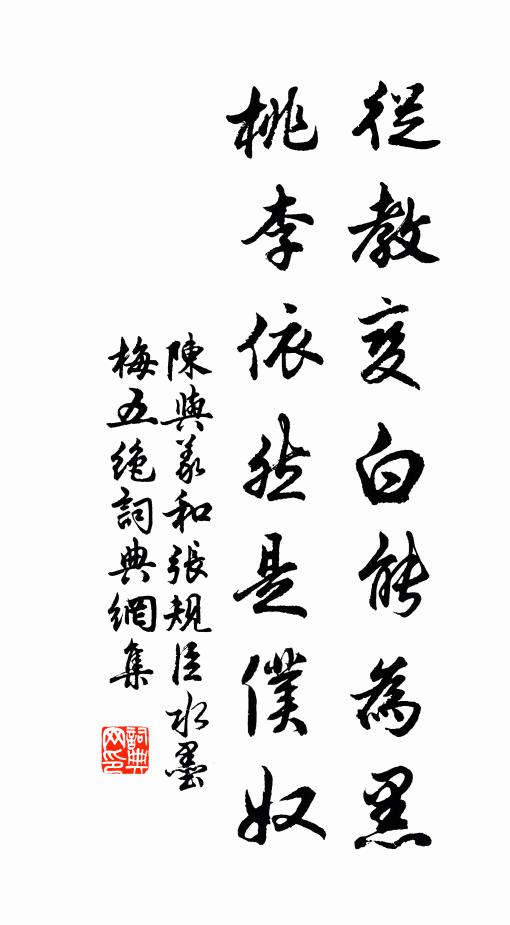 從教變白能為黑
桃李依然是僕奴
陳與義和張規臣水墨
梅五絕詞典網集
詞典網印